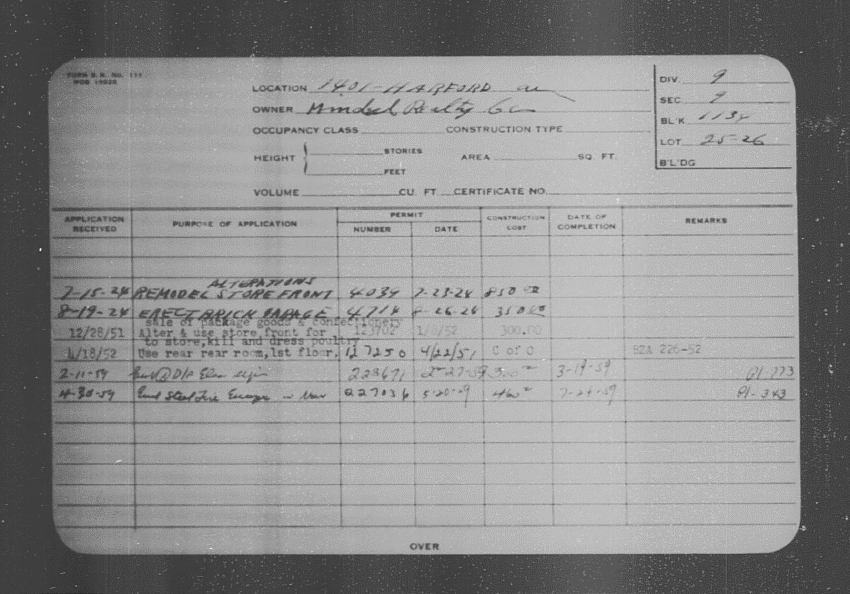 FORM B. R. No. 111
LOCATION 1401-HARFORD av
OWNER Mindel Realty Co
OCCUPANCY CLASS CONSTRUCTION TYPE
HEIGHT STORIES FEET AREA SQ. FT.
VOLUME CU. FT CERTIFICATE NO.
DIV. 9
SEC. 9
BL'K 1134
LOT 25-26
B'L'DG
APPLICATION RECEIVED PURPOSE OF APPLICATION PERMIT NUMBER DATE CONSTRUCTION COST DATE OF COMPLETION REMARKS
ALTERATIONS
7-15-24 REMODEL STORE FRONT 4039 7-23-24 850 00
8-19-24 ERECT BRICK GARAGE 4714 8-26-24 350 00
sale of package goods & confectionery
12/28/51 Alter & use store front for 123702 1/8/52 300.00
to store, kill and dress poultry
4/18/52 Use rear rear room, 1st floor, 127250 4/22/51 C of O BZA 226-52
2-11-59 D/F Elec 223671 2-27-59 300 3-19-59 Pl-773
4-30-59 Erect Steel Fire Escape 227036 5-20-59 460 7-24-59 Pl-343
OVER